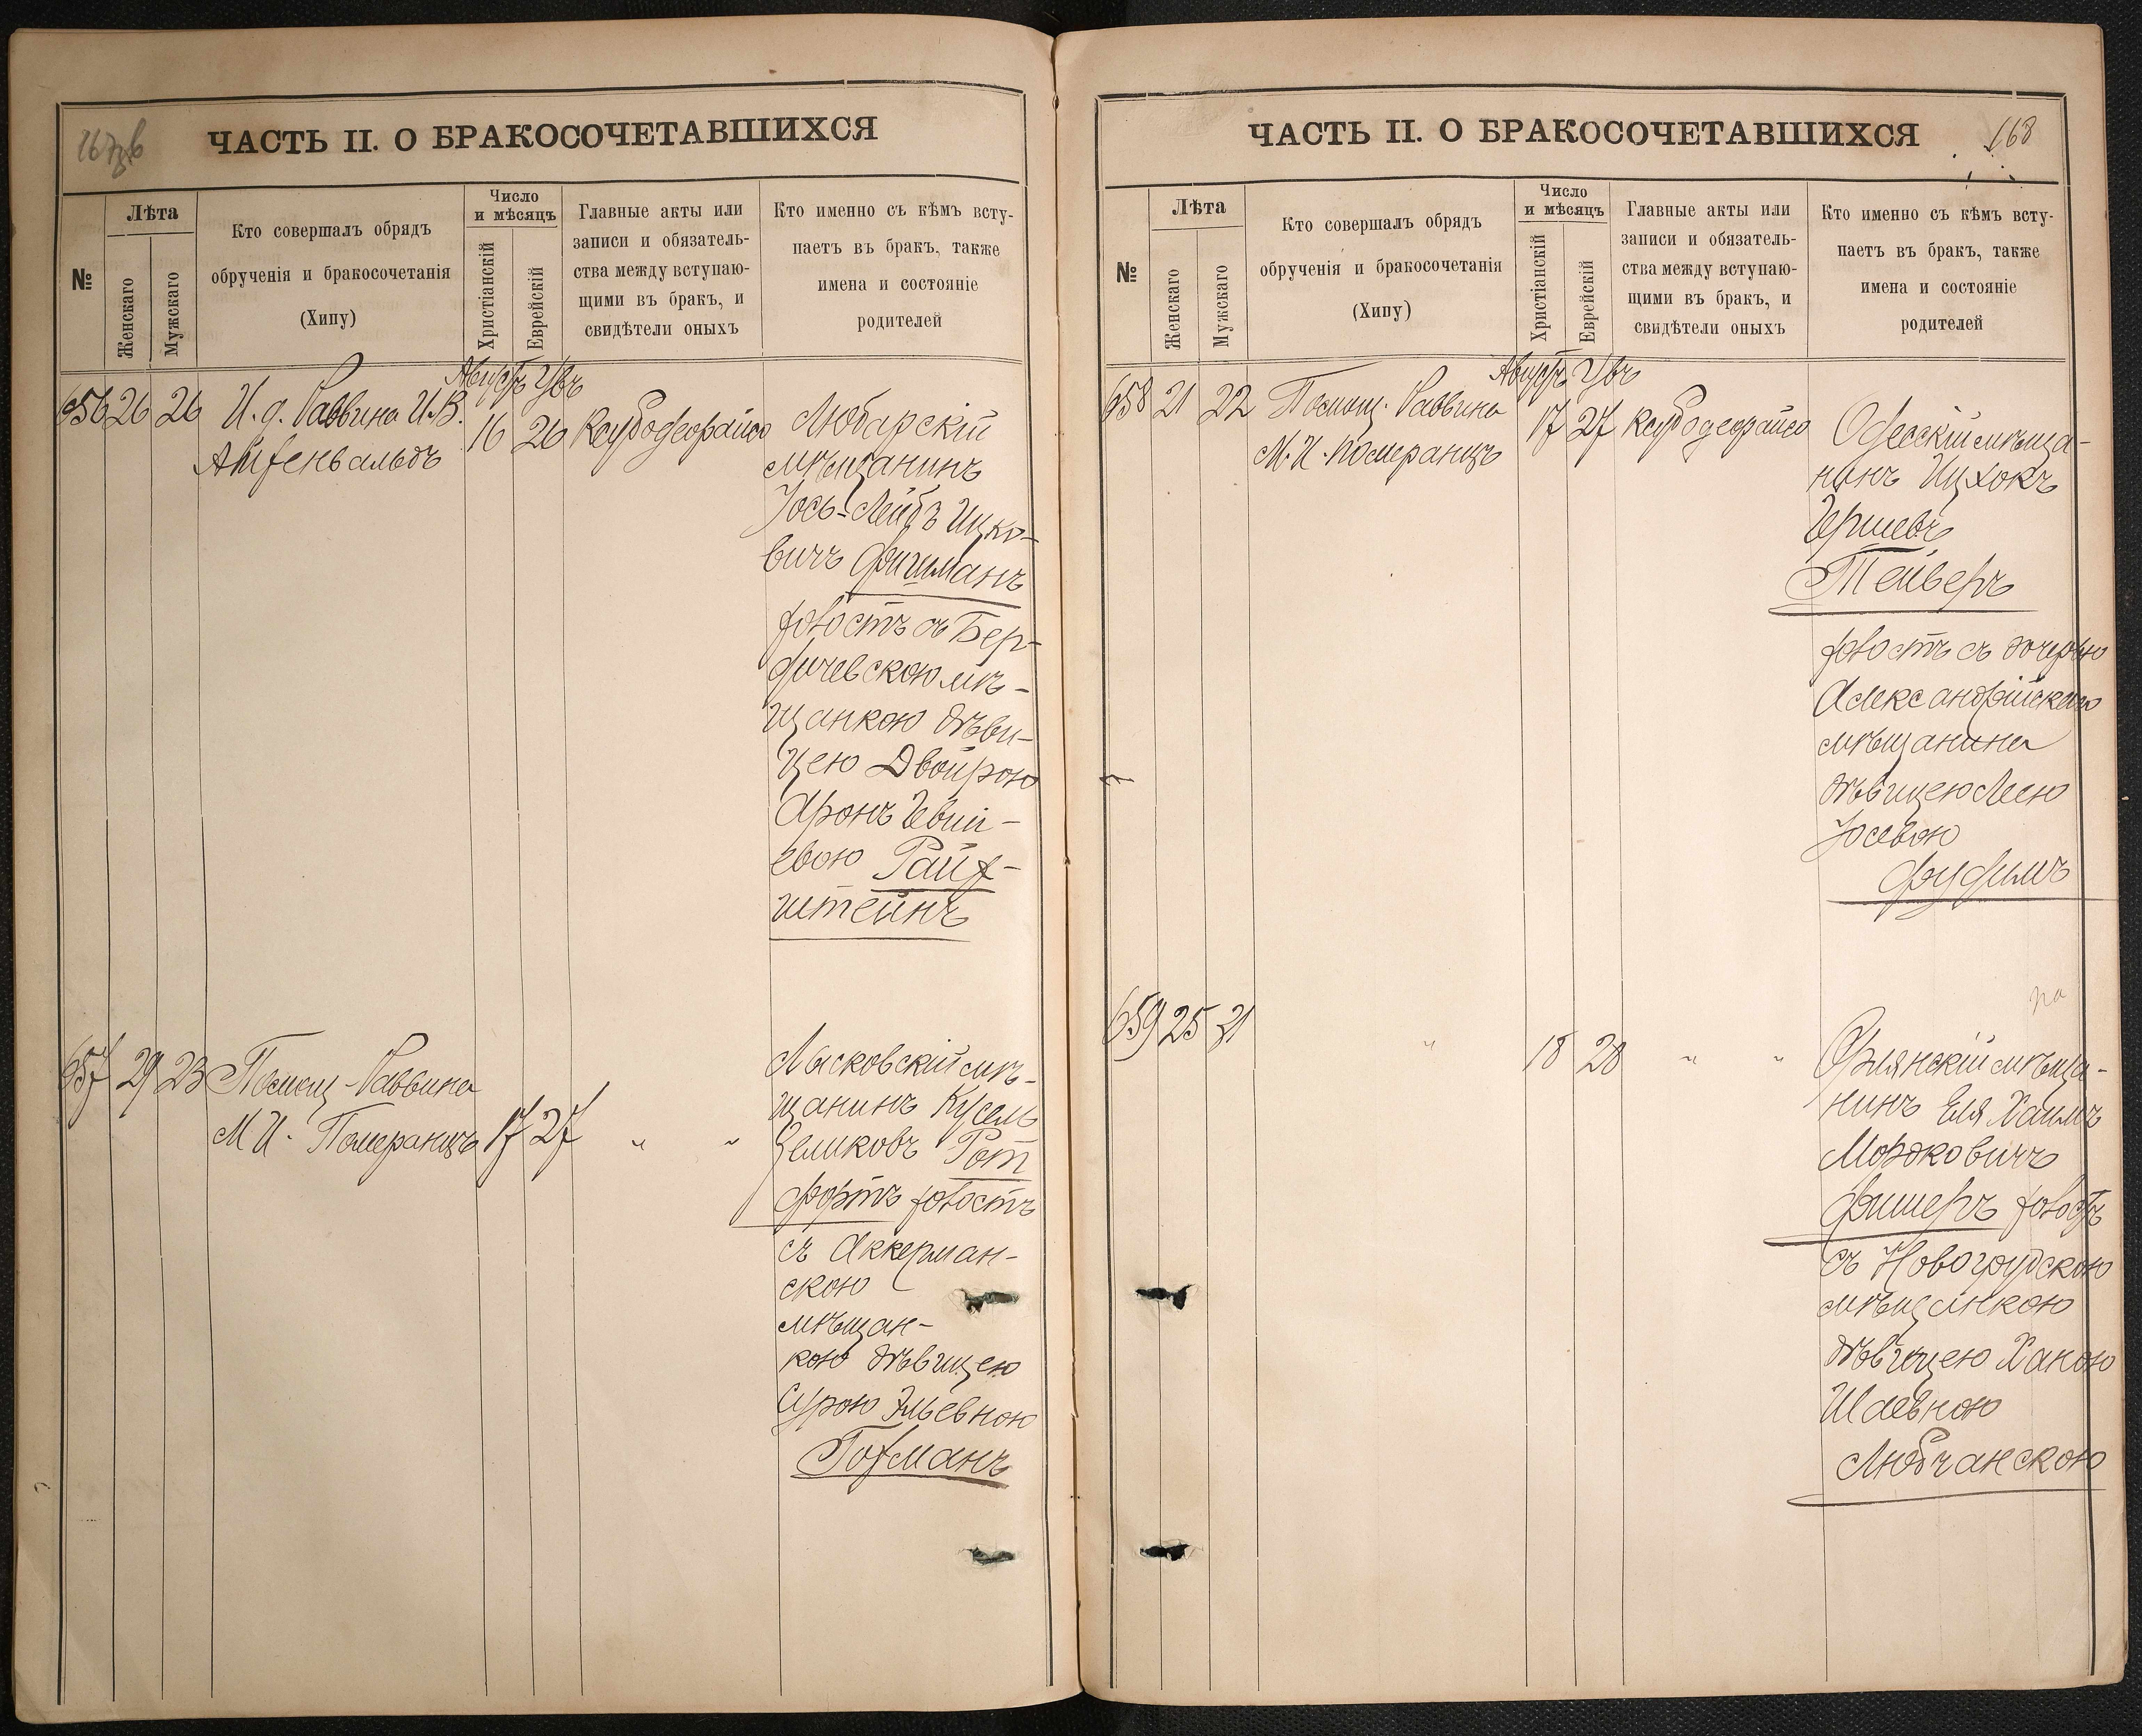 167об
ЧАСТЬ II. О БРАКОСОЧЕТАВШИХСЯ
№
Лѣта
Женскаго
Мужскаго
Кто совершалъ обрядъ
обрученія и бракосочетанія
(Хипу)
Число
и мѣсяцъ
Христіанскій
Еврейскій
Главные акты или
записи и обязатель-
ства между вступаю-
щими въ бракъ, и
свидѣтели оныхъ
Кто именно съ кѣмъ всту-
паетъ въ бракъ, также
имена и состояніе
родителей
Августъ
656 26 26 И. д. Раввина И. В.
Айзенвальдъ
16 26
Любарскій
мѣщанинъ
Іось-Лейбъ Ицко-
вичъ Фишманъ
холостъ съ Бер-
дичевскою мѣ-
щанкою дѣви-
цею Двойрою
Аронъ Гевши-
евою Райх-
штейнъ
657 29 23 Помощ. Раввина
М. И. Померанцъ 17 27 " "
Лысковскій мѣ-
щанинъ Кусель
Зеликовъ Рот
фортъ холостъ
съ Аккерман-
скою
мѣщан-
кою дѣвицею
Сурою Эльевною
Гохманъ
168
ЧАСТЬ II. О БРАКОСОЧЕТАВШИХСЯ
№
Лѣта
Женскаго
Мужскаго
Кто совершалъ обрядъ
обрученія и бракосочетанія
(Хипу)
Число
и мѣсяцъ
Христіанскій
Еврейскій
Главные акты или
записи и обязатель-
ства между вступаю-
щими въ бракъ, и
свидѣтели оныхъ
Кто именно съ кѣмъ всту-
паетъ въ бракъ, также
имена и состояніе
родителей
Августъ
658 21 22 Помощ. Раввина
М. И. Померанцъ
17 27
Одесскій мѣща-
нинъ Ицхокъ
Гершевъ
Тейверъ
холостъ съ дочерью
Александрійскаго
мѣщанина
дѣвицею Леею
Іосевою
Фудимъ
659 25 21 " 18 28 " "
мѣща-
нинъ Еля Хаимъ
Мордковичъ
Фишеръ холостъ
съ Новогрудскою
мѣщанкою
дѣвицею Ханою
Шаевною
Любчанскою